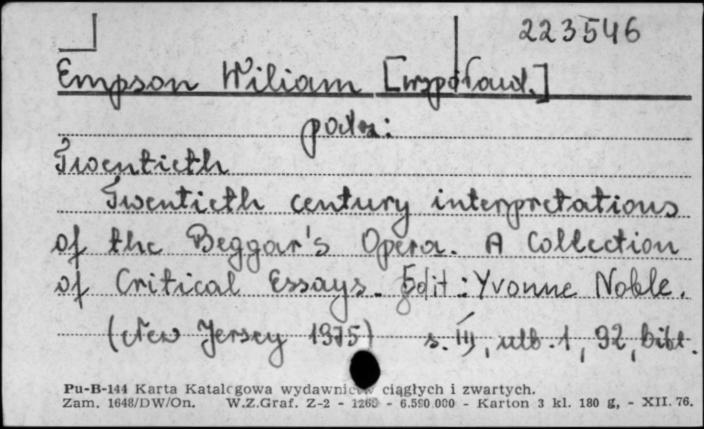 223546
Empson Wiliam [współaut.]
patrz:
Twentieth
Twentieth century interpretations
of the Beggar's Opera. A Collection
of Critical Essays. Edit: Yvonne Noble.
(New Jersey 1975) s. III, nlb. 1, 92, bibl.
Pu-B-144 Karta Katalogowa wydawnictw ciągłych i zwartych.
Zam. 1648/DW/On. W.Z.Graf. Z-2 - 1260 - 6.590.000 - Karton 3 kl. 180 g, - XII. 76.